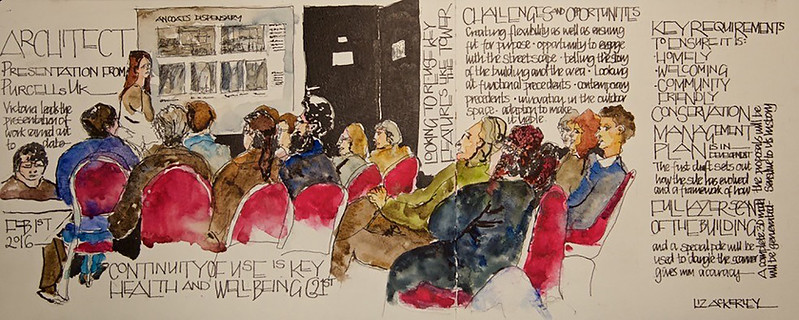 ARCHITECT
PRESENTATION FROM
PURCELLS UK
Victoria leads the
presentation of
work carried out
to date
FEB 1ST
2016
ANCOATS DISPENSARY
CONTINUITY OF USE IS KEY
HEALTH AND WELLBEING C21ST
LOOKING TO REUSE KEY
FEATURES LIKE THE TOWER
CHALLENGES AND OPPORTUNITIES
Creating flexibility as well as ensuring
fit for purpose - opportunity to engage
with the streetscape - telling the story
of the building and the area - Looking
at functional precedents - contemporary
precedents - innovation in the outdoor
space - adaption to make
it viable
KEY REQUIREMENTS
TO ENSURE IT IS:
- HOMELY
- WELCOMING
- COMMUNITY
FRIENDLY
CONSERVATION
MANAGEMENT
PLAN IS IN
DEVELOPMENT
The first draft sets out
how the site has evolved
and a framework of how
the proposals will be
sensitive to its history
FULL LAZER SCAN
OF THE BUILDING
and a special pole will be
used to dangle the scanner
gives mm accuracy
A complete 3D model
will be generated
LIZ ACKERLEY